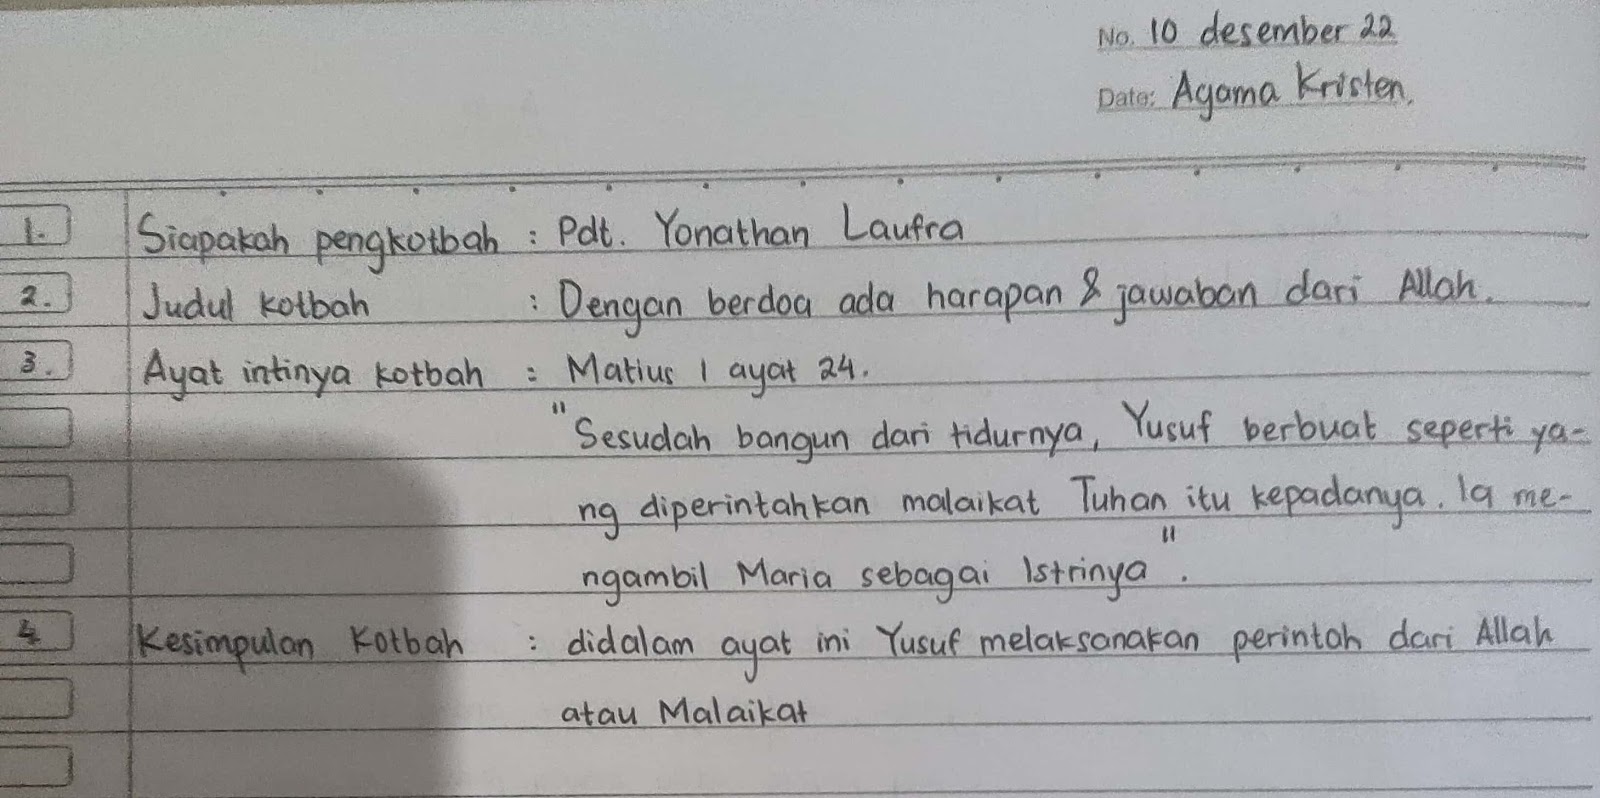 No. 10 desember 22
Date: Agama Kristen.
1. Siapakah pengkotbah : Pdt. Yonathan Laufra
2. Judul kotbah : Dengan berdoa ada harapan & jawaban dari Allah.
3. Ayat intinya kotbah : Matius 1 ayat 24.
"Sesudah bangun dari tidurnya, Yusuf berbuat seperti ya-
ng diperintahkan malaikat Tuhan itu kepadanya. Ia me-
ngambil Maria sebagai Istrinya".
4. Kesimpulan Kotbah : didalam ayat ini Yusuf melaksanakan perintah dari Allah
atau Malaikat